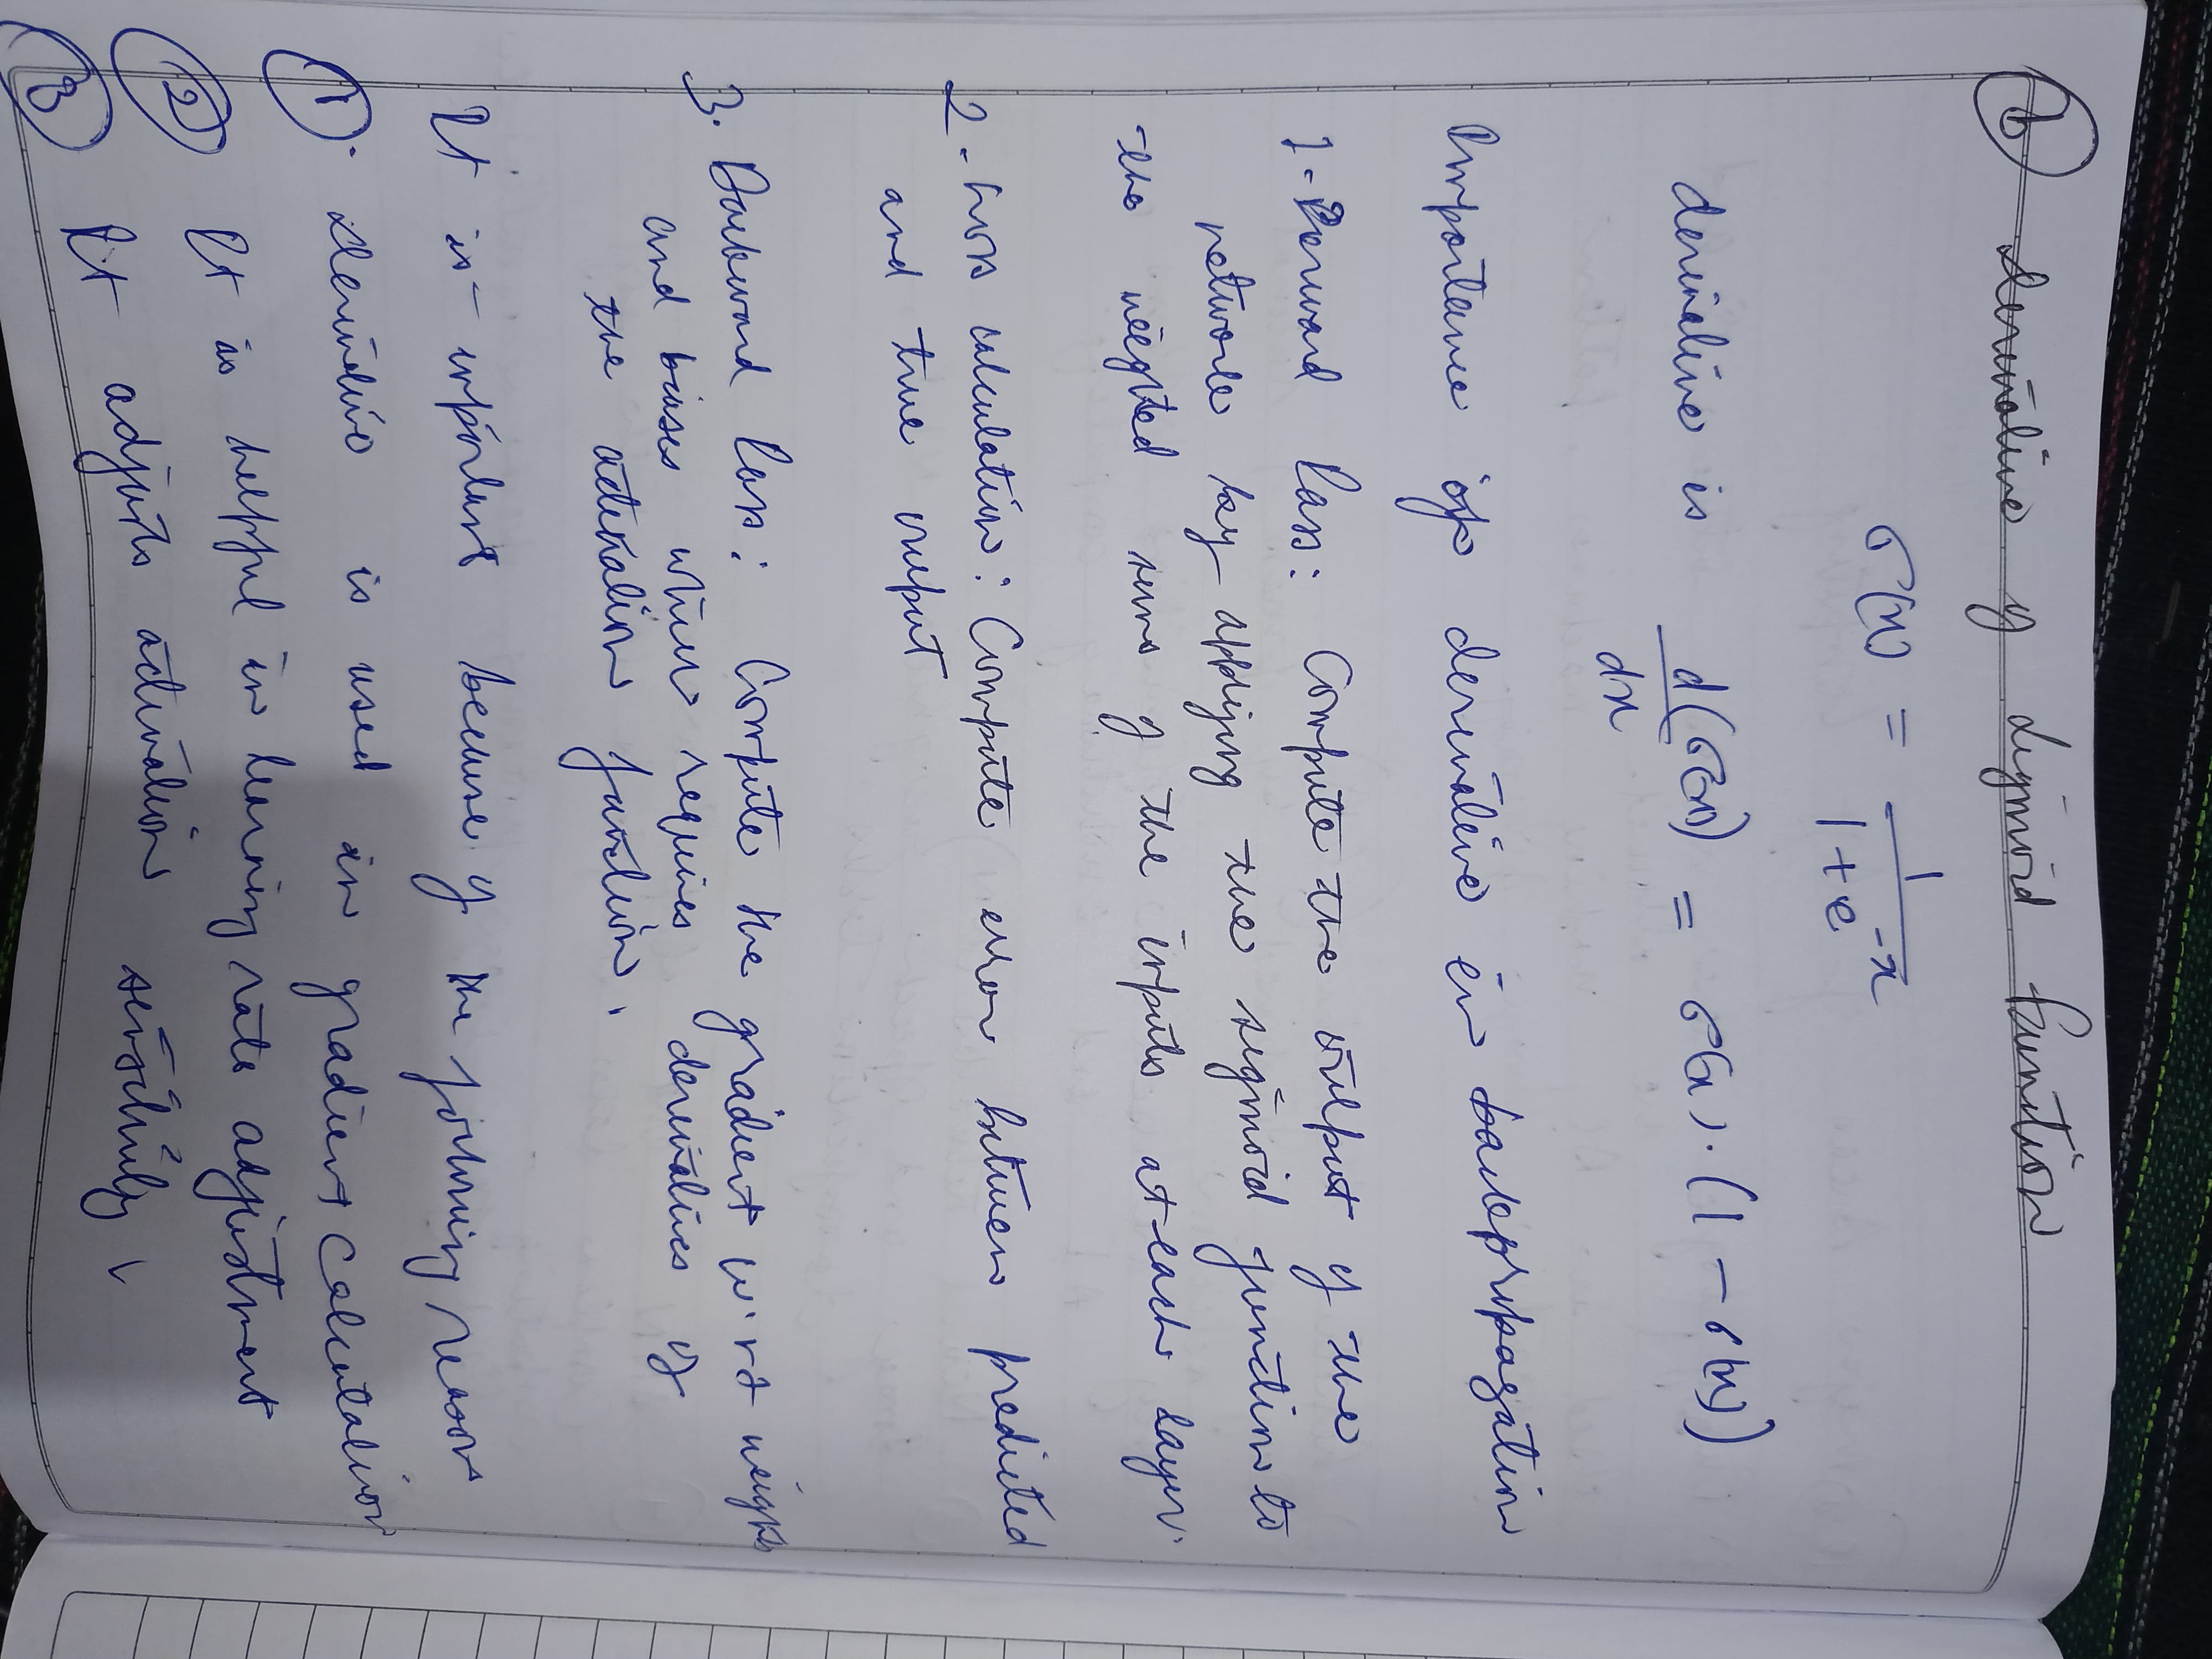 b Derivative of Sigmoid Function
σ(x) = 1 / 1 + e^-x
derivative is d(σ(x)) / dx = σ(x) . (1 - σ(x))
Importance of derivative in backpropagation
1- Forward Pass: Compute the output of the
network by applying the sigmoid function to
the weighted sum of the inputs at each layer.
2- Loss calculation: Compute error between predicted
and true output
3. Backward Pass: Compute the gradient w.r.t weights
and biases which requires derivatives of
the activation function.
It is important because of the following reasons
1. Derivative is used in gradient calculation
2 It is helpful in learning rate adjustment
3 It adjusts activation sensitivity